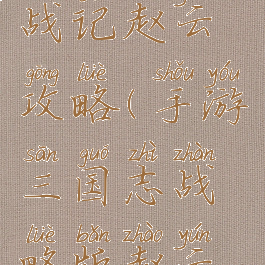 战记赵云
gōng lüè shǒu yóu
攻略(手游
sān guó zhì zhàn
三国志战
lüè bǎn zhào yún
略版赵云